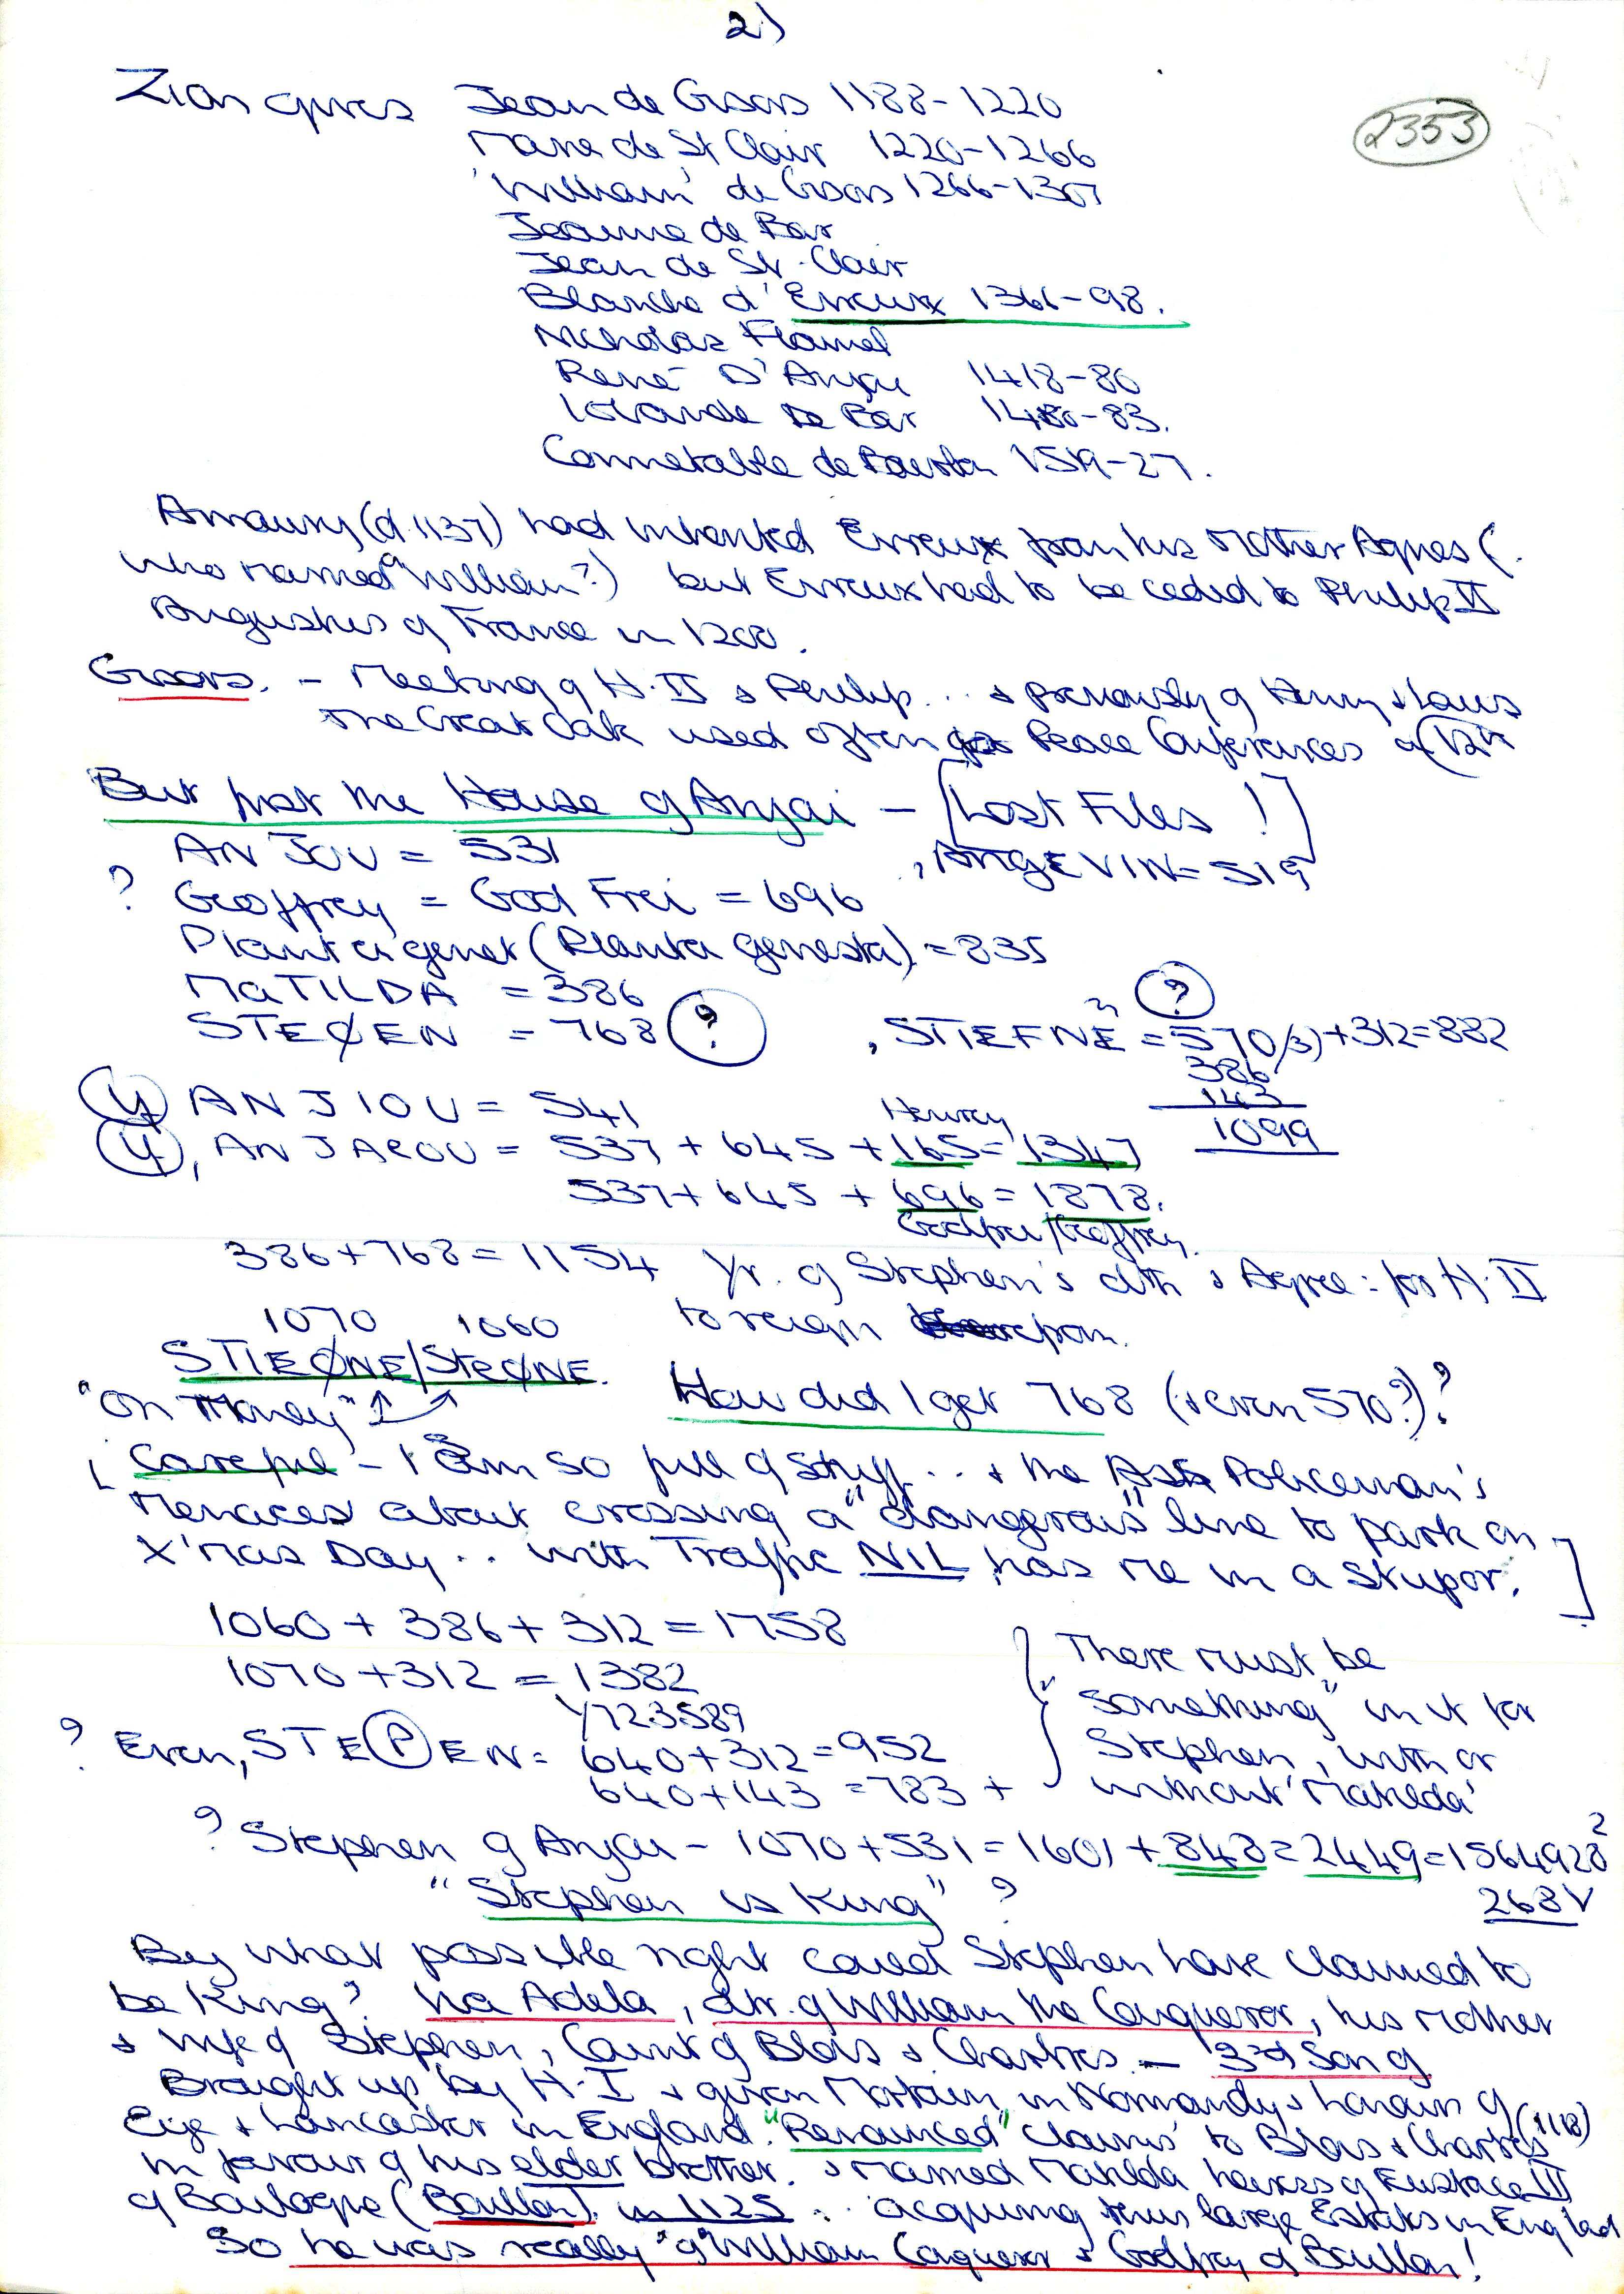 2)
2353
Zion gives Jean de Gisors 1188-1220
Marie de St Clair 1220-1266
'William' de Gisors 1266-1307
Jeanne de Bar
Jean de St. Clair
Blanche d'Evreux 1366-98.
Nicholas Flamel
René D'Anjou 1418-80
Iolande De Bar 1480-83.
Connetable de Bourbon 1519-27.
Amaury (d. 1137) had inherited Evreux from his Mother Agnes (
who married a William?) but Evreux had to be ceded to Philip II
Augustus of France in 1200.
Gisors. - Meeting of H.II & Philip.. & previously of Henry & Louis
The Great Oak used often for Peace Conferences
But first the House of Anjou - [Lost Files!]
ANJOU = 531 , ANGEVIN = 519
? Geoffrey = God Frei = 696
Plantagenet (Planta genesta) = 835
MaTILDA = 386
STEØEN = 768 ? , STIEFNE = 570(3)+312=882 ?
386
143
1099
(4) ANJIOU = 541
(4), ANJAROU = 537 + 645 + 165 = 1347
Henry
537 + 645 + 696 = 1878.
Godfrei/Geoffrey.
386+768 = 1154 Yr. of Stephen's dth & Agree: for H.II
to reign from.
1070 1060
STIEØNE/SteØNE.
"On Money" How did I get 768 (& even 570?)?
[Careful - I am so full of stuff... & the Policeman's
Menaces about crossing a "dangerous" line to park on
X'mas Day.. with Traffic NIL, has me in a stupor.]
1060 + 386 + 312 = 1758
1070 + 312 = 1382
1723589
? Even, STE(P)EN = 640+312 = 952
640+143 = 783 +
There must be
"something" in it for
Stephen, with or
without 'Matilda'
? Stephen of Anjou - 1070+531 = 1601 + 848 = 2449 = 1564928²
268V
"Stephen is King" ?
By what possible right could Stephen have claimed to
be King? via Adela, dtr. of William the Conqueror, his Mother
& wife of Stephen, Count of Blois & Chartres - 3rd Son of
Brought up by H.I & given Mortain in Normandy & honours of
Eye & Lancaster in England. "Renounced" claims to Blois & Chartres (1118)
in favour of his elder brother. & married Matilda heiress of Eustace III
of Boulogne (Bouillon) in 1125.. acquiring thus large Estates in England
So he was really "of" William Conqueror & Godfrey of Bouillon!